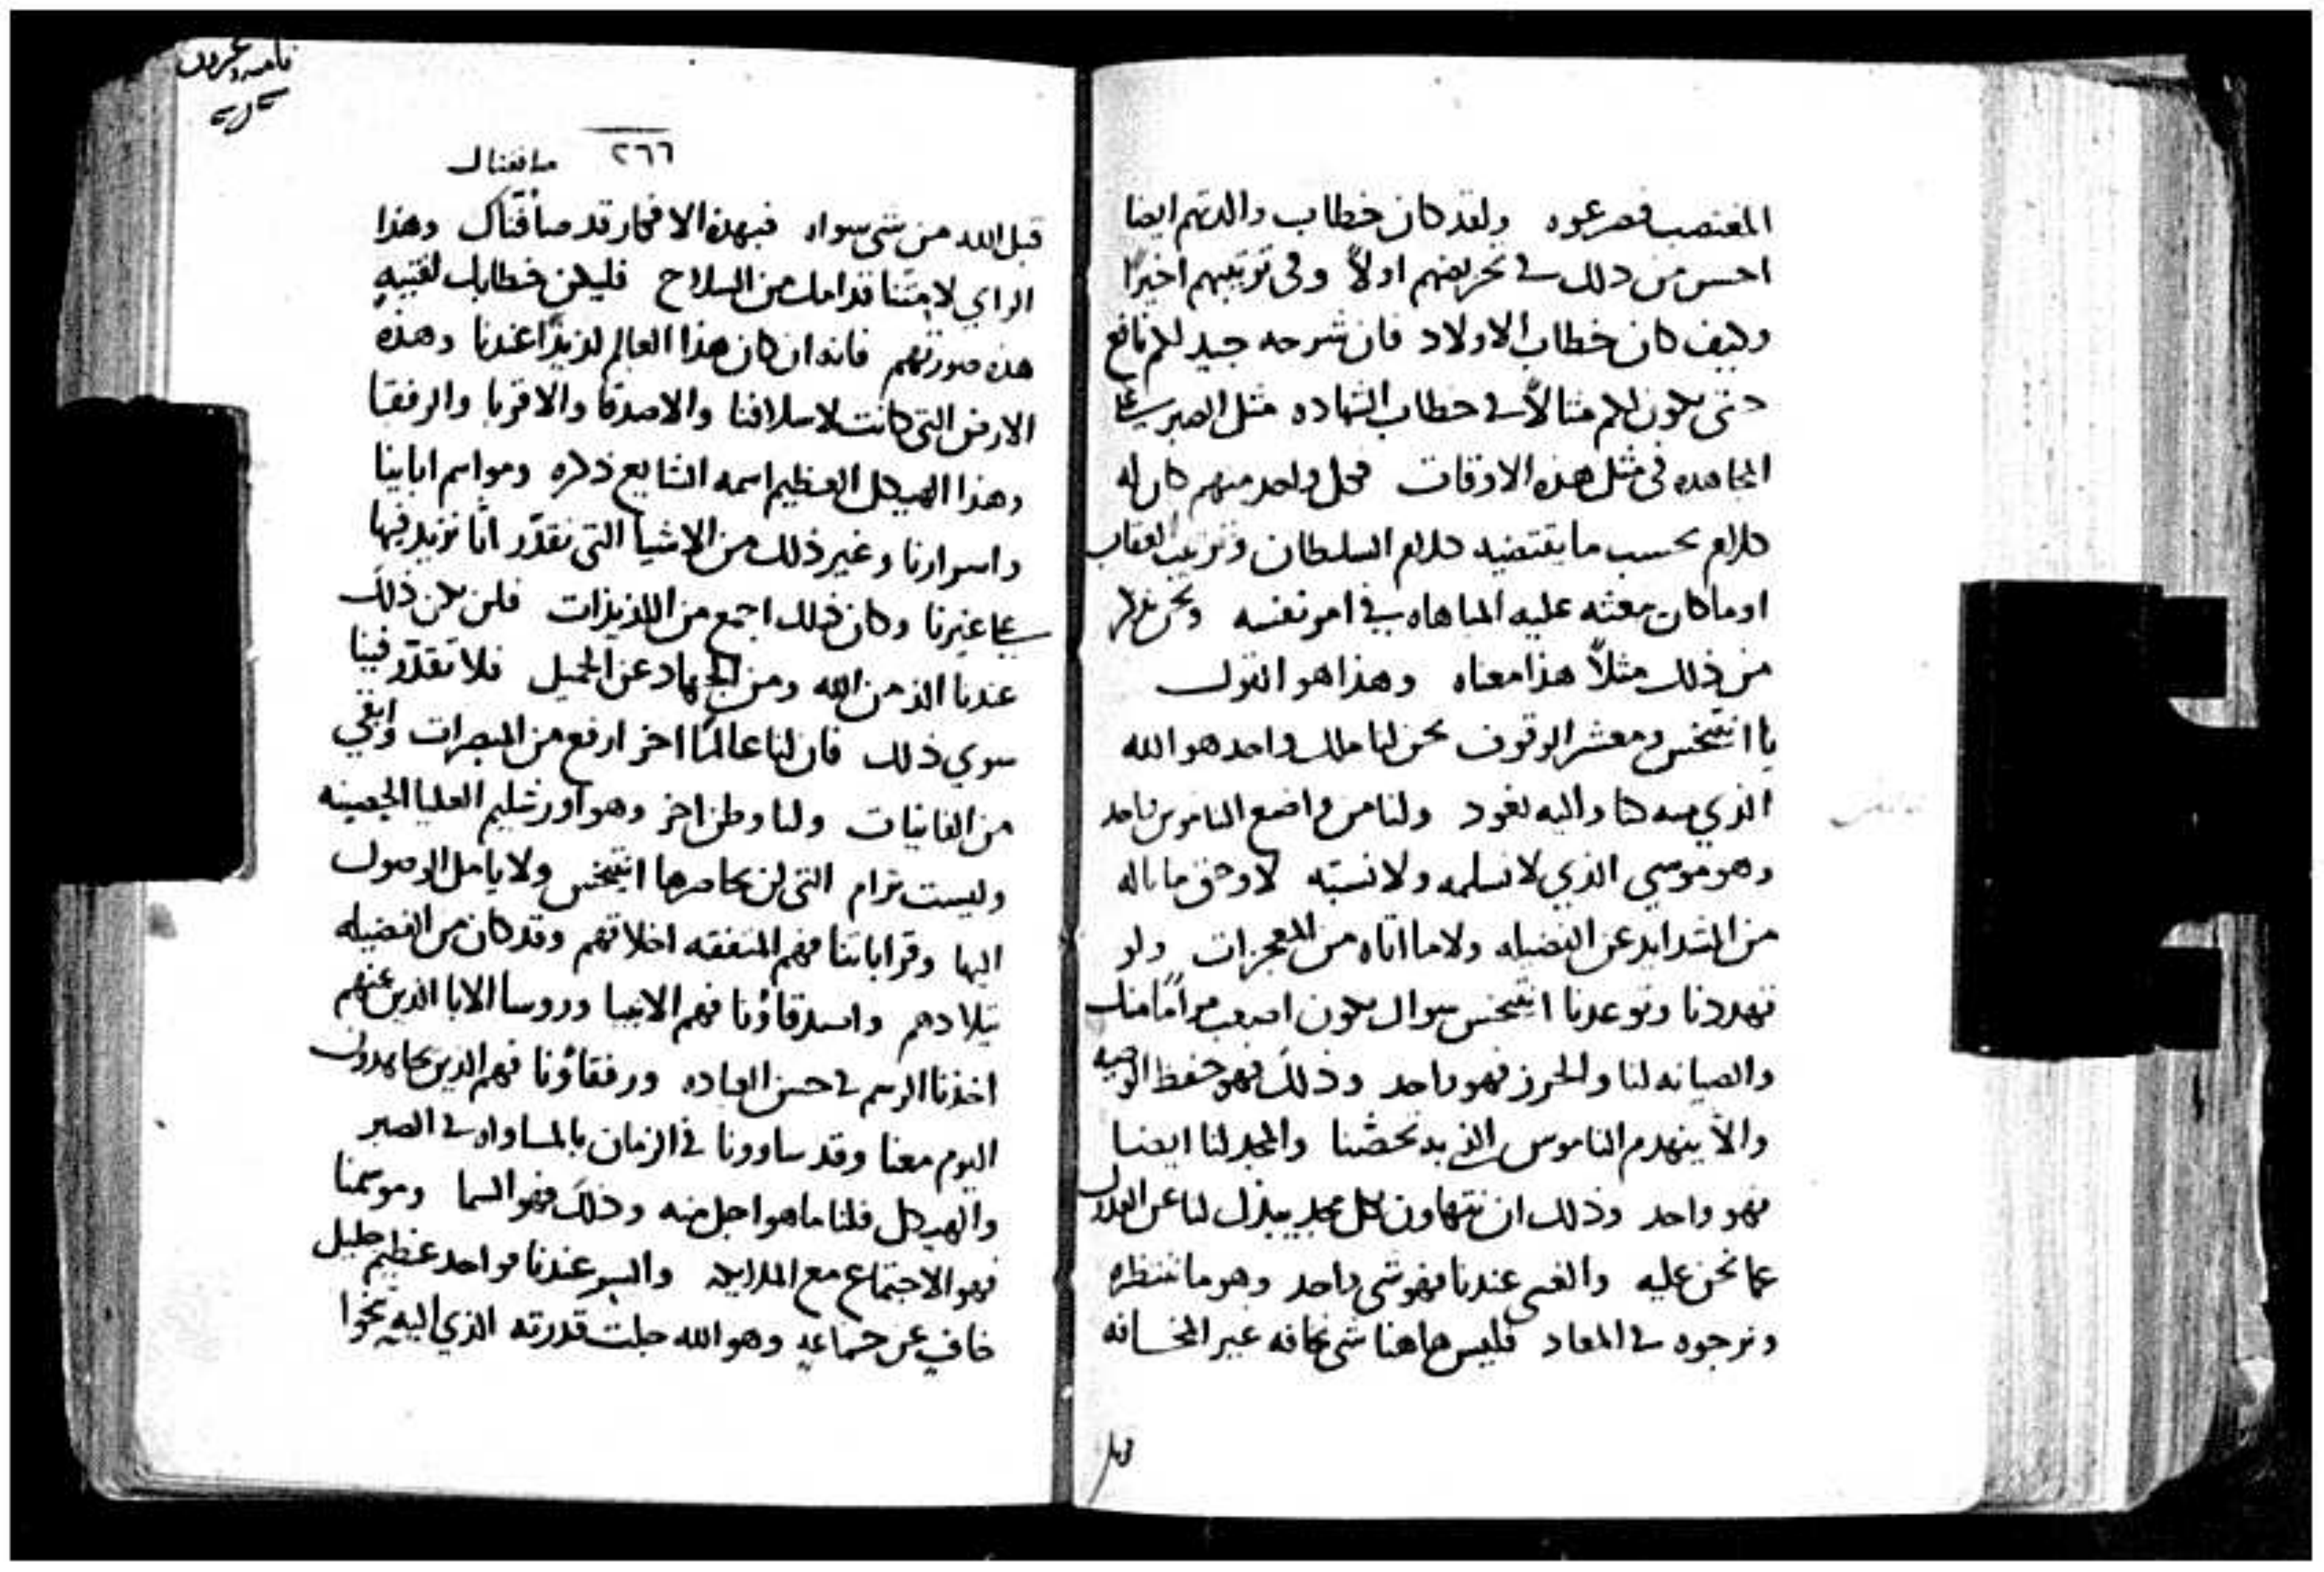 المغتصب فصرعوه ولقد كان خطاب والدتهم ايضا
احسن من ذلك في تحريضهم اولاً وفي ترتيبهم اخيرًا
وكيف كان خطاب الاولاد فان شرحه جيد لكم نافع
حتى يكون لكم مثالاً في خطاب الشهاده مثل الصبر على
المجاهده في مثل هذه الاوقات فكل واحد منهم كان له
كلام بحسب ما يقتضيه كلام السلطان وترتيب العقاب
او ما كان بعثه عليه المباهاه في امر نفسه ونحن نذكر
من ذلك مثلاً هذا معناه وهذا هو القول
يا انتيخس ومعشر الوقوف نحن لنا ملك واحد هو الله
الذي منه كنا واليه نعود ولنا من واضع الناموس واحد
وهو موسي الذي لا نسلمه ولا نسبّه لا وحق ما ناله
من الشدايد عن الفضيله ولا ما اتاه من المعجزات ولو
تهددنا وتوعدنا انتيخس سواك يكون اصعب مرامًا منك
والصيانه لنا والحرز فهو واحد وذلك فهو حفظ الوصيه
والاّ ينهدم الناموس الذي به تحصّنا والمجد لنا ايضا
فهو واحد وذلك ان نتهاون بكل مجد يبذل لنا عن العدول
عما نحن عليه والغنى عندنا فهو شي واحد وهو ما ننتظره
ونرجوه في المعاد فليس هاهنا شي نخافه غير المخافه
٢٦٦
صافقناك
قبل الله من شي سواه فبهذه الافكار قد صافقناك وهذا
الراي لامتنا قدامك من السلاح فليكن خطابك لفتيه
هذه صورتهم فانه ان كان هذا العالم لذيذًا عندنا وهذه
الارض التي كانت لاسلافنا والاصدقا والاقربا والرفقا
وهذا الهيكل العظيم اسمه الشايع ذكره ومواسم ابائنا
واسرارنا وغير ذلك من الاشيا التي نقدّر انّا نزيد فيها
على غيرنا وكان ذلك اجمع من اللذيذات فلن يكن ذلك
عندنا الذ من الله ومن الجهاد عن الجميل فلا تقدّر فينا
سوي ذلك فان لنا عالمًا اخر ارفع من المبصرات وابقي
من الفانيات ولنا وطن اخر وهو اورشليم العليا الحصينه
وليست ترام التي لن يحاصرها انتيخس ولا يامل الوصول
اليها وقراباتنا فهم المتفقه اخلاقهم وقد كان من الفضيله
تيلادهم واصدقاؤنا فهم الانبيا وروسا الابا الذين عنهم
اخذنا الرسم في حسن العباده ورفقاؤنا فهم الذين يجاهدون
اليوم معنا وقد ساوونا في الزمان بالمساواه في الصبر
والهيكل فلنا ما هو اجل منه وذلك فهو السما وموسمنا
فهو الاجتماع مع الملايكه والسر عندنا فواحد عظيم جليل
خافي عن جماعه وهو الله جلت قدرته الذي اليه نحوا